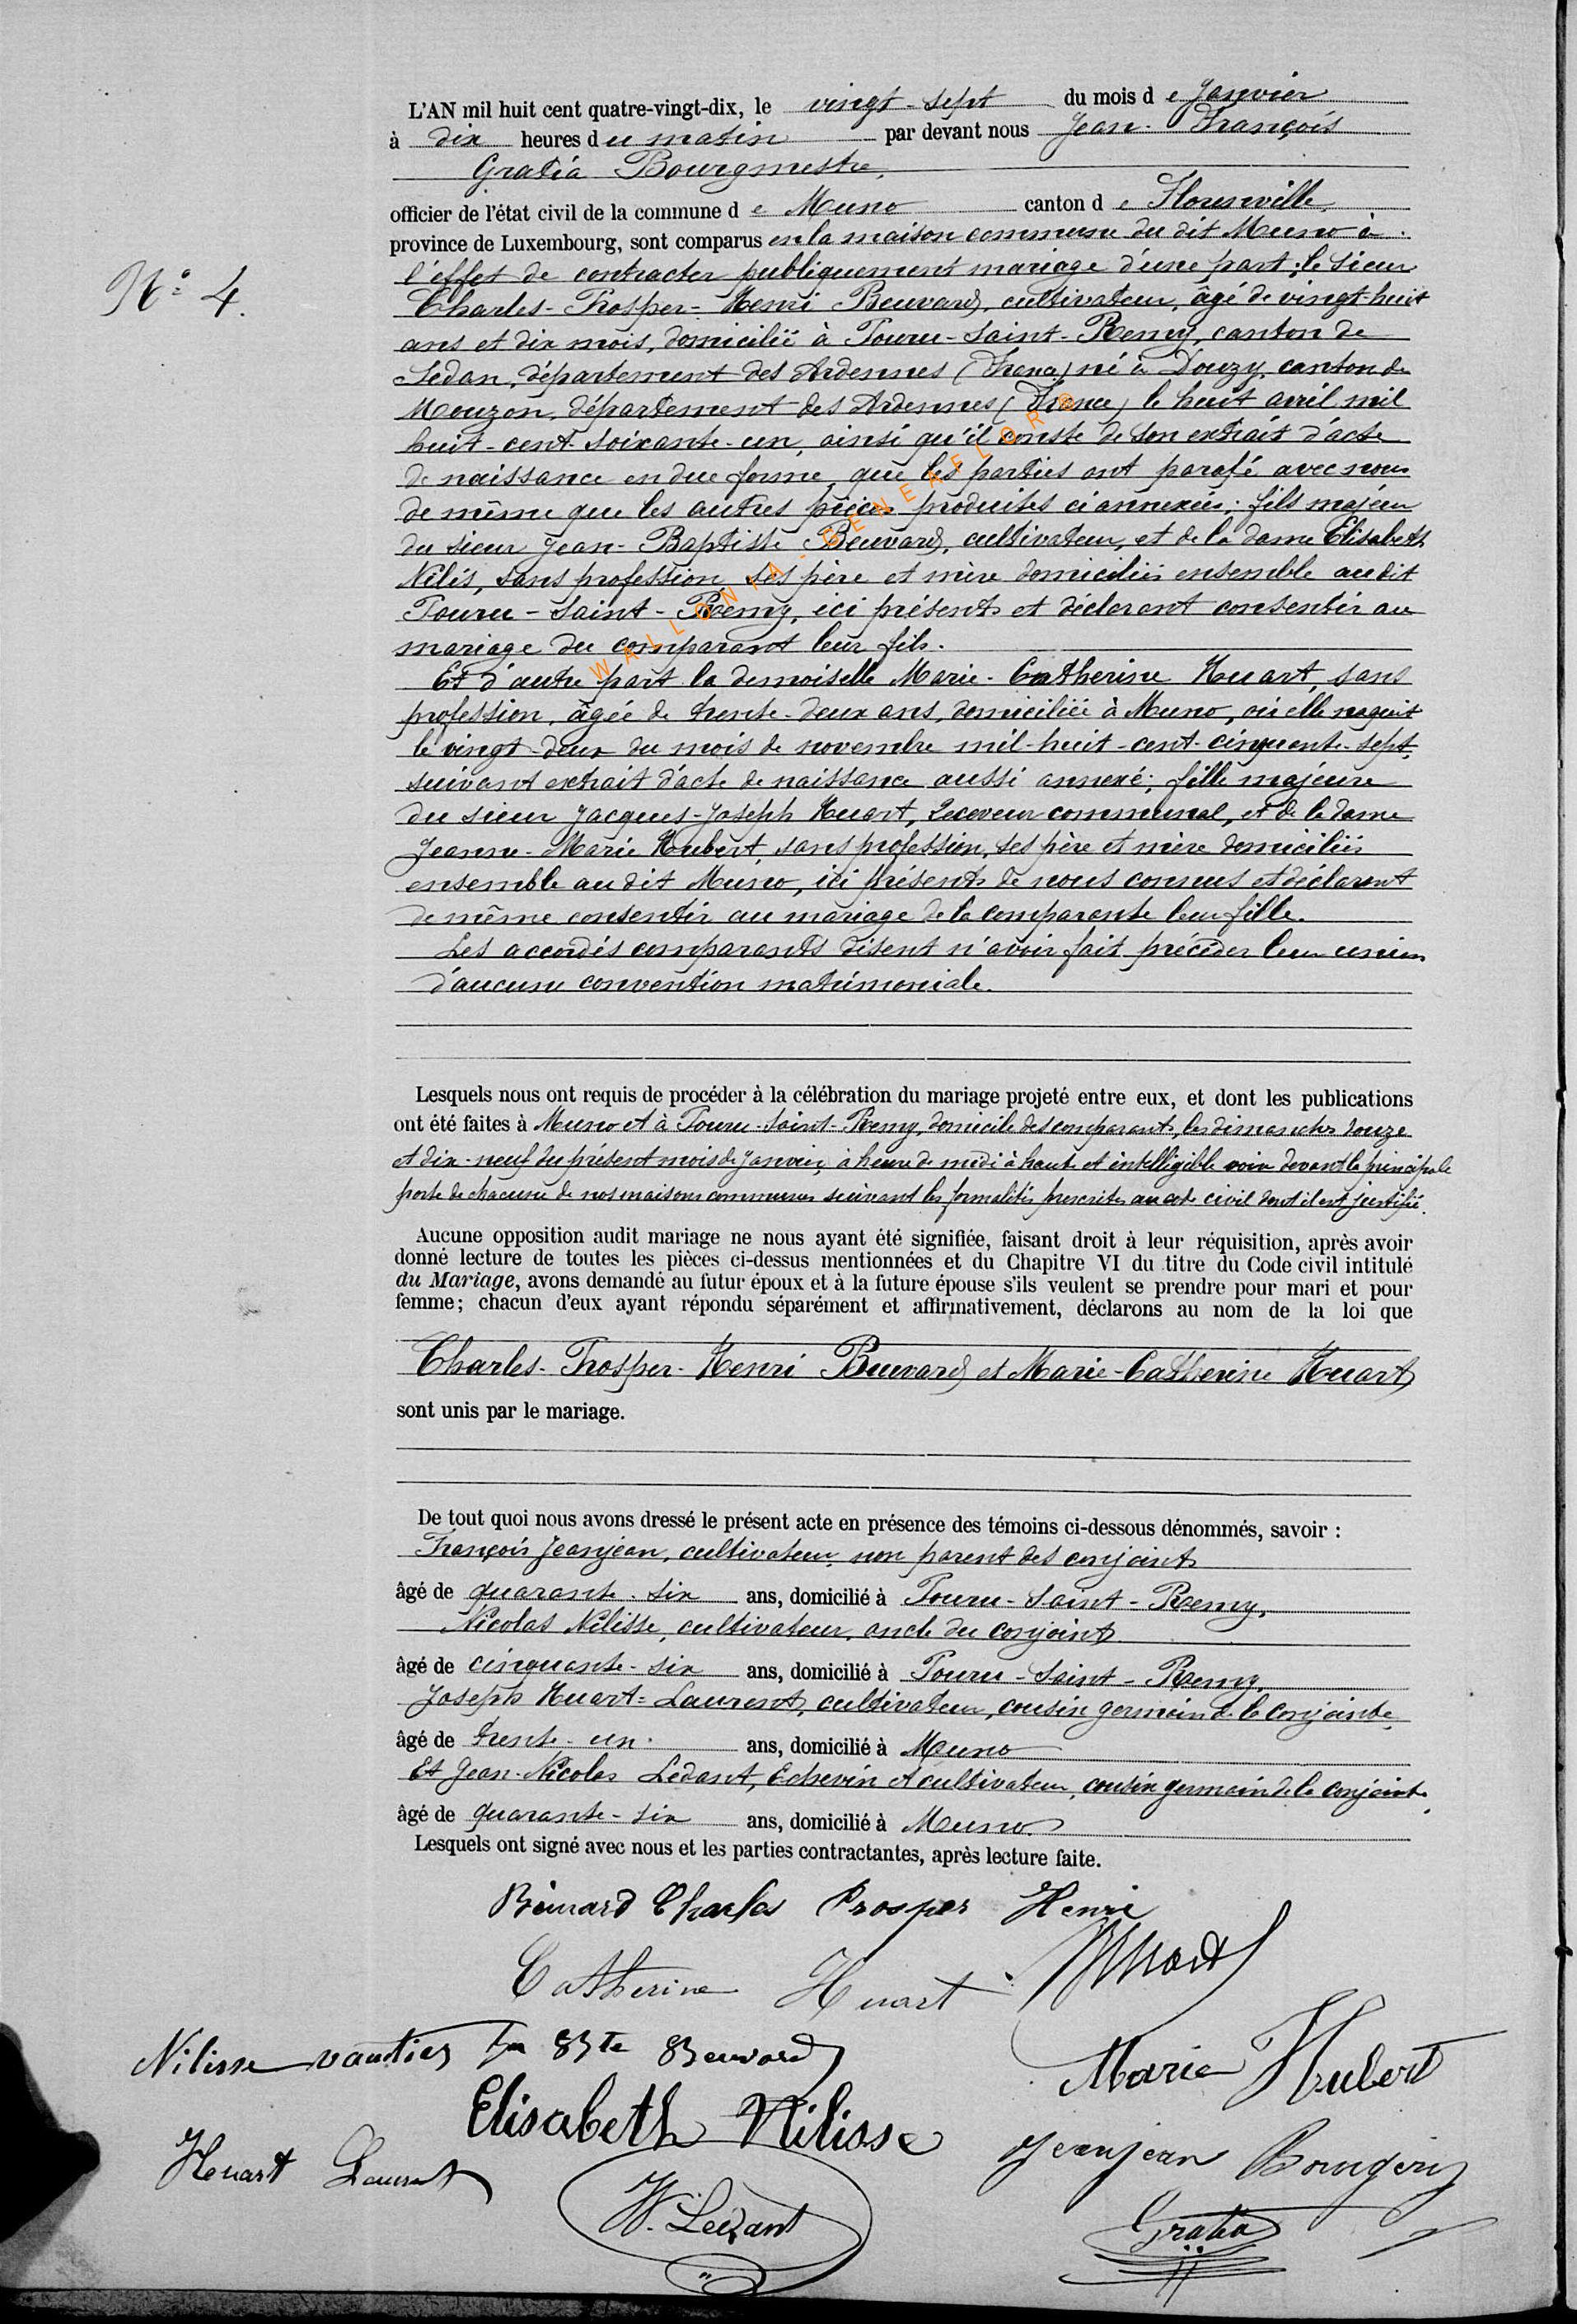 L'AN mil huit cent quatre-vingt-dix, le vingt-sept du mois de Janvier
à dix heures du matin par devant nous Jean-François
Gratia Bourgmestre,
officier de l'état civil de la commune de Muno canton de Florenville,
province de Luxembourg, sont comparus en la maison commune du dit Muno à
N° 4.
l'effet de contracter publiquement mariage d'une part; le sieur
Charles-Prosper-Henri Beuvard, cultivateur, âgé de vingt-huit
ans et dix mois, domicilié à Pouru-Saint-Remy, canton de
Sedan, département des Ardennes (France) né à Douzy, canton de
Mouzon, département des Ardennes (France) le huit avril mil
huit-cent-soixante-un, ainsi qu'il conste de son extrait d'acte
de naissance en due forme, que les parties ont parafé avec nous
de même que les autres pièces produites ci annexées; fils majeur
du sieur Jean-Baptiste Beuvard, cultivateur, et de la dame Elisabeth
Nilis, sans profession, ses père et mère domiciliés ensemble au dit
Pouru-Saint-Remy, ici présents et déclarant consentir au
mariage du comparant leur fils.
Et d'autre part la demoiselle Marie-Catherine Huart, sans
profession, âgée de trente-deux ans, domiciliée à Muno, où elle naquit
le vingt-deux du mois de novembre mil-huit-cent-cinquante-sept,
suivant extrait d'acte de naissance aussi annexé; fille majeure
du sieur Jacques-Joseph Huart, Receveur communal, et de la dame
Jeanne-Marie Hubert, sans profession, ses père et mère domiciliés
ensemble au dit Muno, ici présents de nous connus et déclarant
de même consentir au mariage de la comparante leur fille.
Les accordés comparants disent n'avoir fait précéder leur union
d'aucune convention matrimoniale.
WALLONIA-GENEAFLOR©
Lesquels nous ont requis de procéder à la célébration du mariage projeté entre eux, et dont les publications
ont été faites à Muno et à Pouru-Saint-Remy, domicile des comparants, les dimanches douze
et dix-neuf du présent mois de Janvier, à heure de midi à haute et intelligible voix devant la principale
porte de chacune de nos maisons communes suivant les formalités prescrites au code civil dont il est justifié.
Aucune opposition audit mariage ne nous ayant été signifiée, faisant droit à leur réquisition, après avoir
donné lecture de toutes les pièces ci-dessus mentionnées et du Chapitre VI du titre du Code civil intitulé
du Mariage, avons demandé au futur époux et à la future épouse s'ils veulent se prendre pour mari et pour
femme; chacun d'eux ayant répondu séparément et affirmativement, déclarons au nom de la loi que
Charles-Prosper-Henri Beuvard et Marie-Catherine Huart
sont unis par le mariage.
De tout quoi nous avons dressé le présent acte en présence des témoins ci-dessous dénommés, savoir :
François Jeanjean, cultivateur, non parent des conjoints
âgé de quarante-six ans, domicilié à Pouru-Saint-Remy,
Nicolas Nilisse, cultivateur, oncle du conjoint
âgé de cinquante-six ans, domicilié à Pouru-Saint-Remy,
Joseph Huart-Laurent, cultivateur, cousin germain de la conjointe,
âgé de trente-un ans, domicilié à Muno
Et Jean-Nicolas Ledant, Echevin et cultivateur, cousin germain de la conjointe,
âgé de quarante-six ans, domicilié à Muno.
Lesquels ont signé avec nous et les parties contractantes, après lecture faite.
Beuvard Charles Prosper Henri
Catherine Huart Huart
Nilisse vautier Jn Bte Beuvard Marie Hubert
Elisabeth Nilisse
Huart Laurent Jeanjean
N. Ledant Gratia